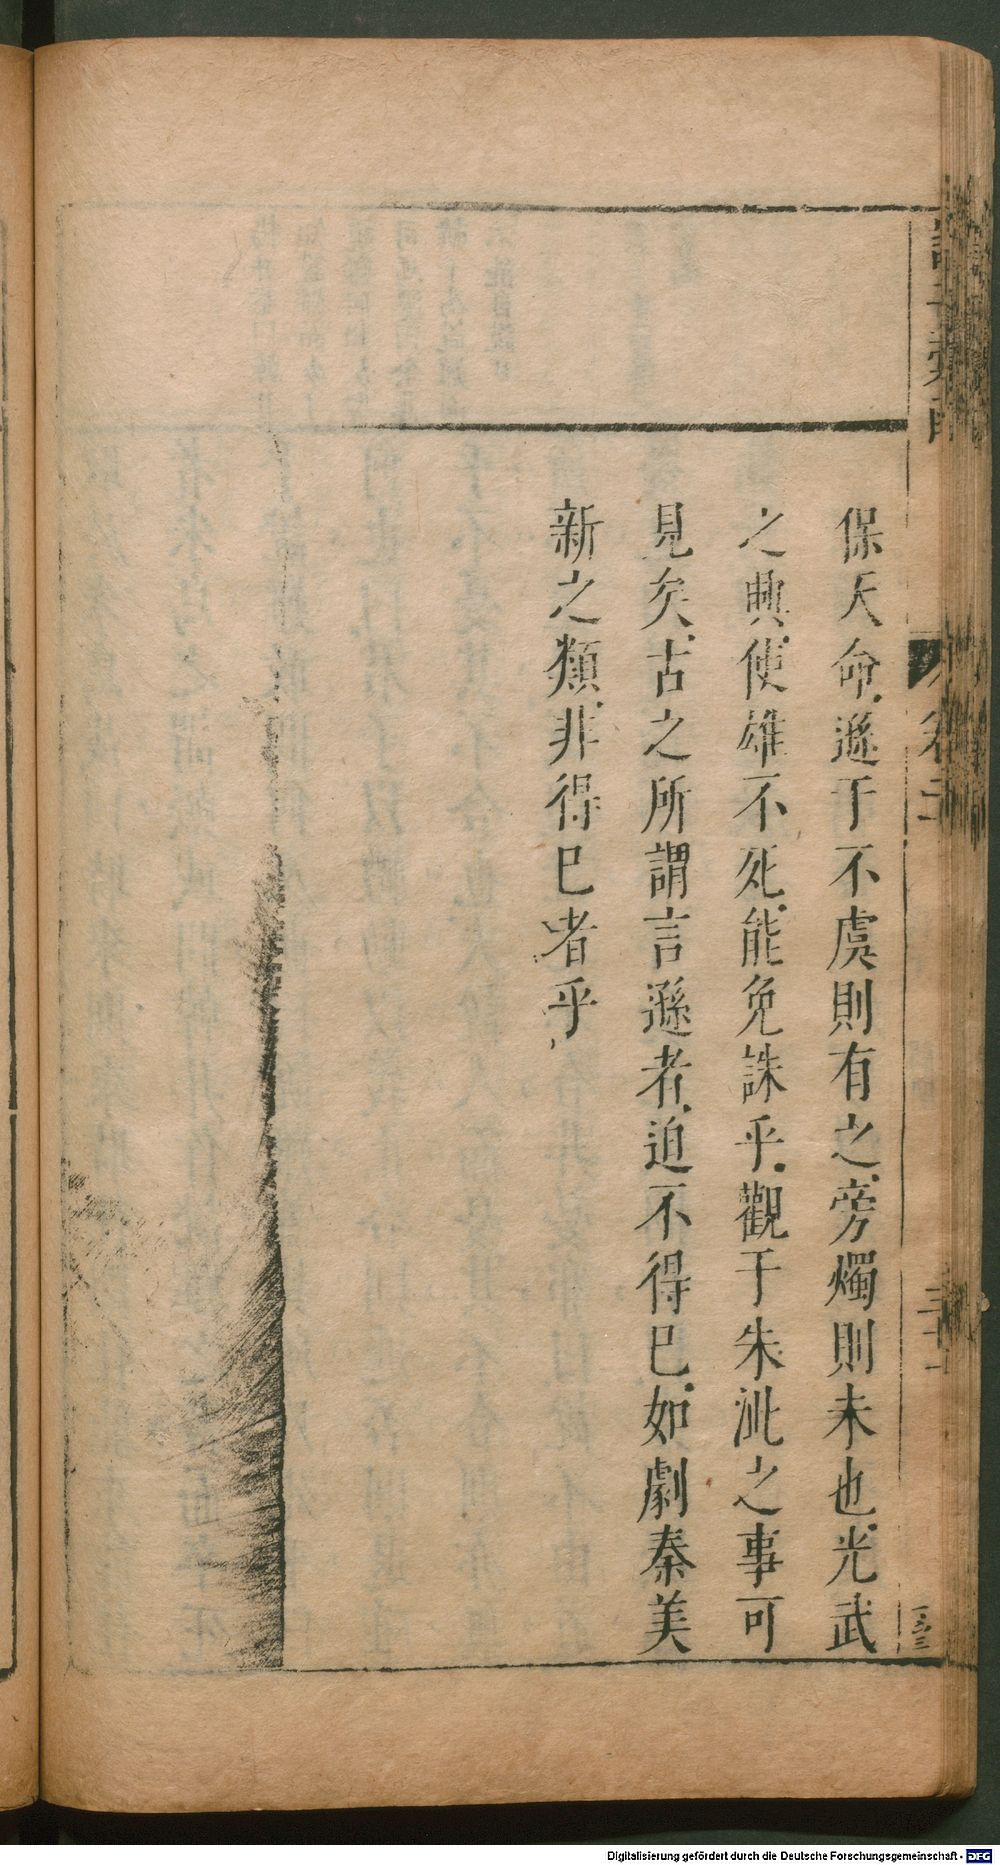 保天命遜于不虞則有之旁燭則未也光武
之興使雄不死能免誅乎觀于朱泚之事可
見矣古之所謂言遜者迫不得已如劇秦美
新之類非得已者乎
Digitalisierung gefördert durch die Deutsche Forschungsgemeinschaft - DFG